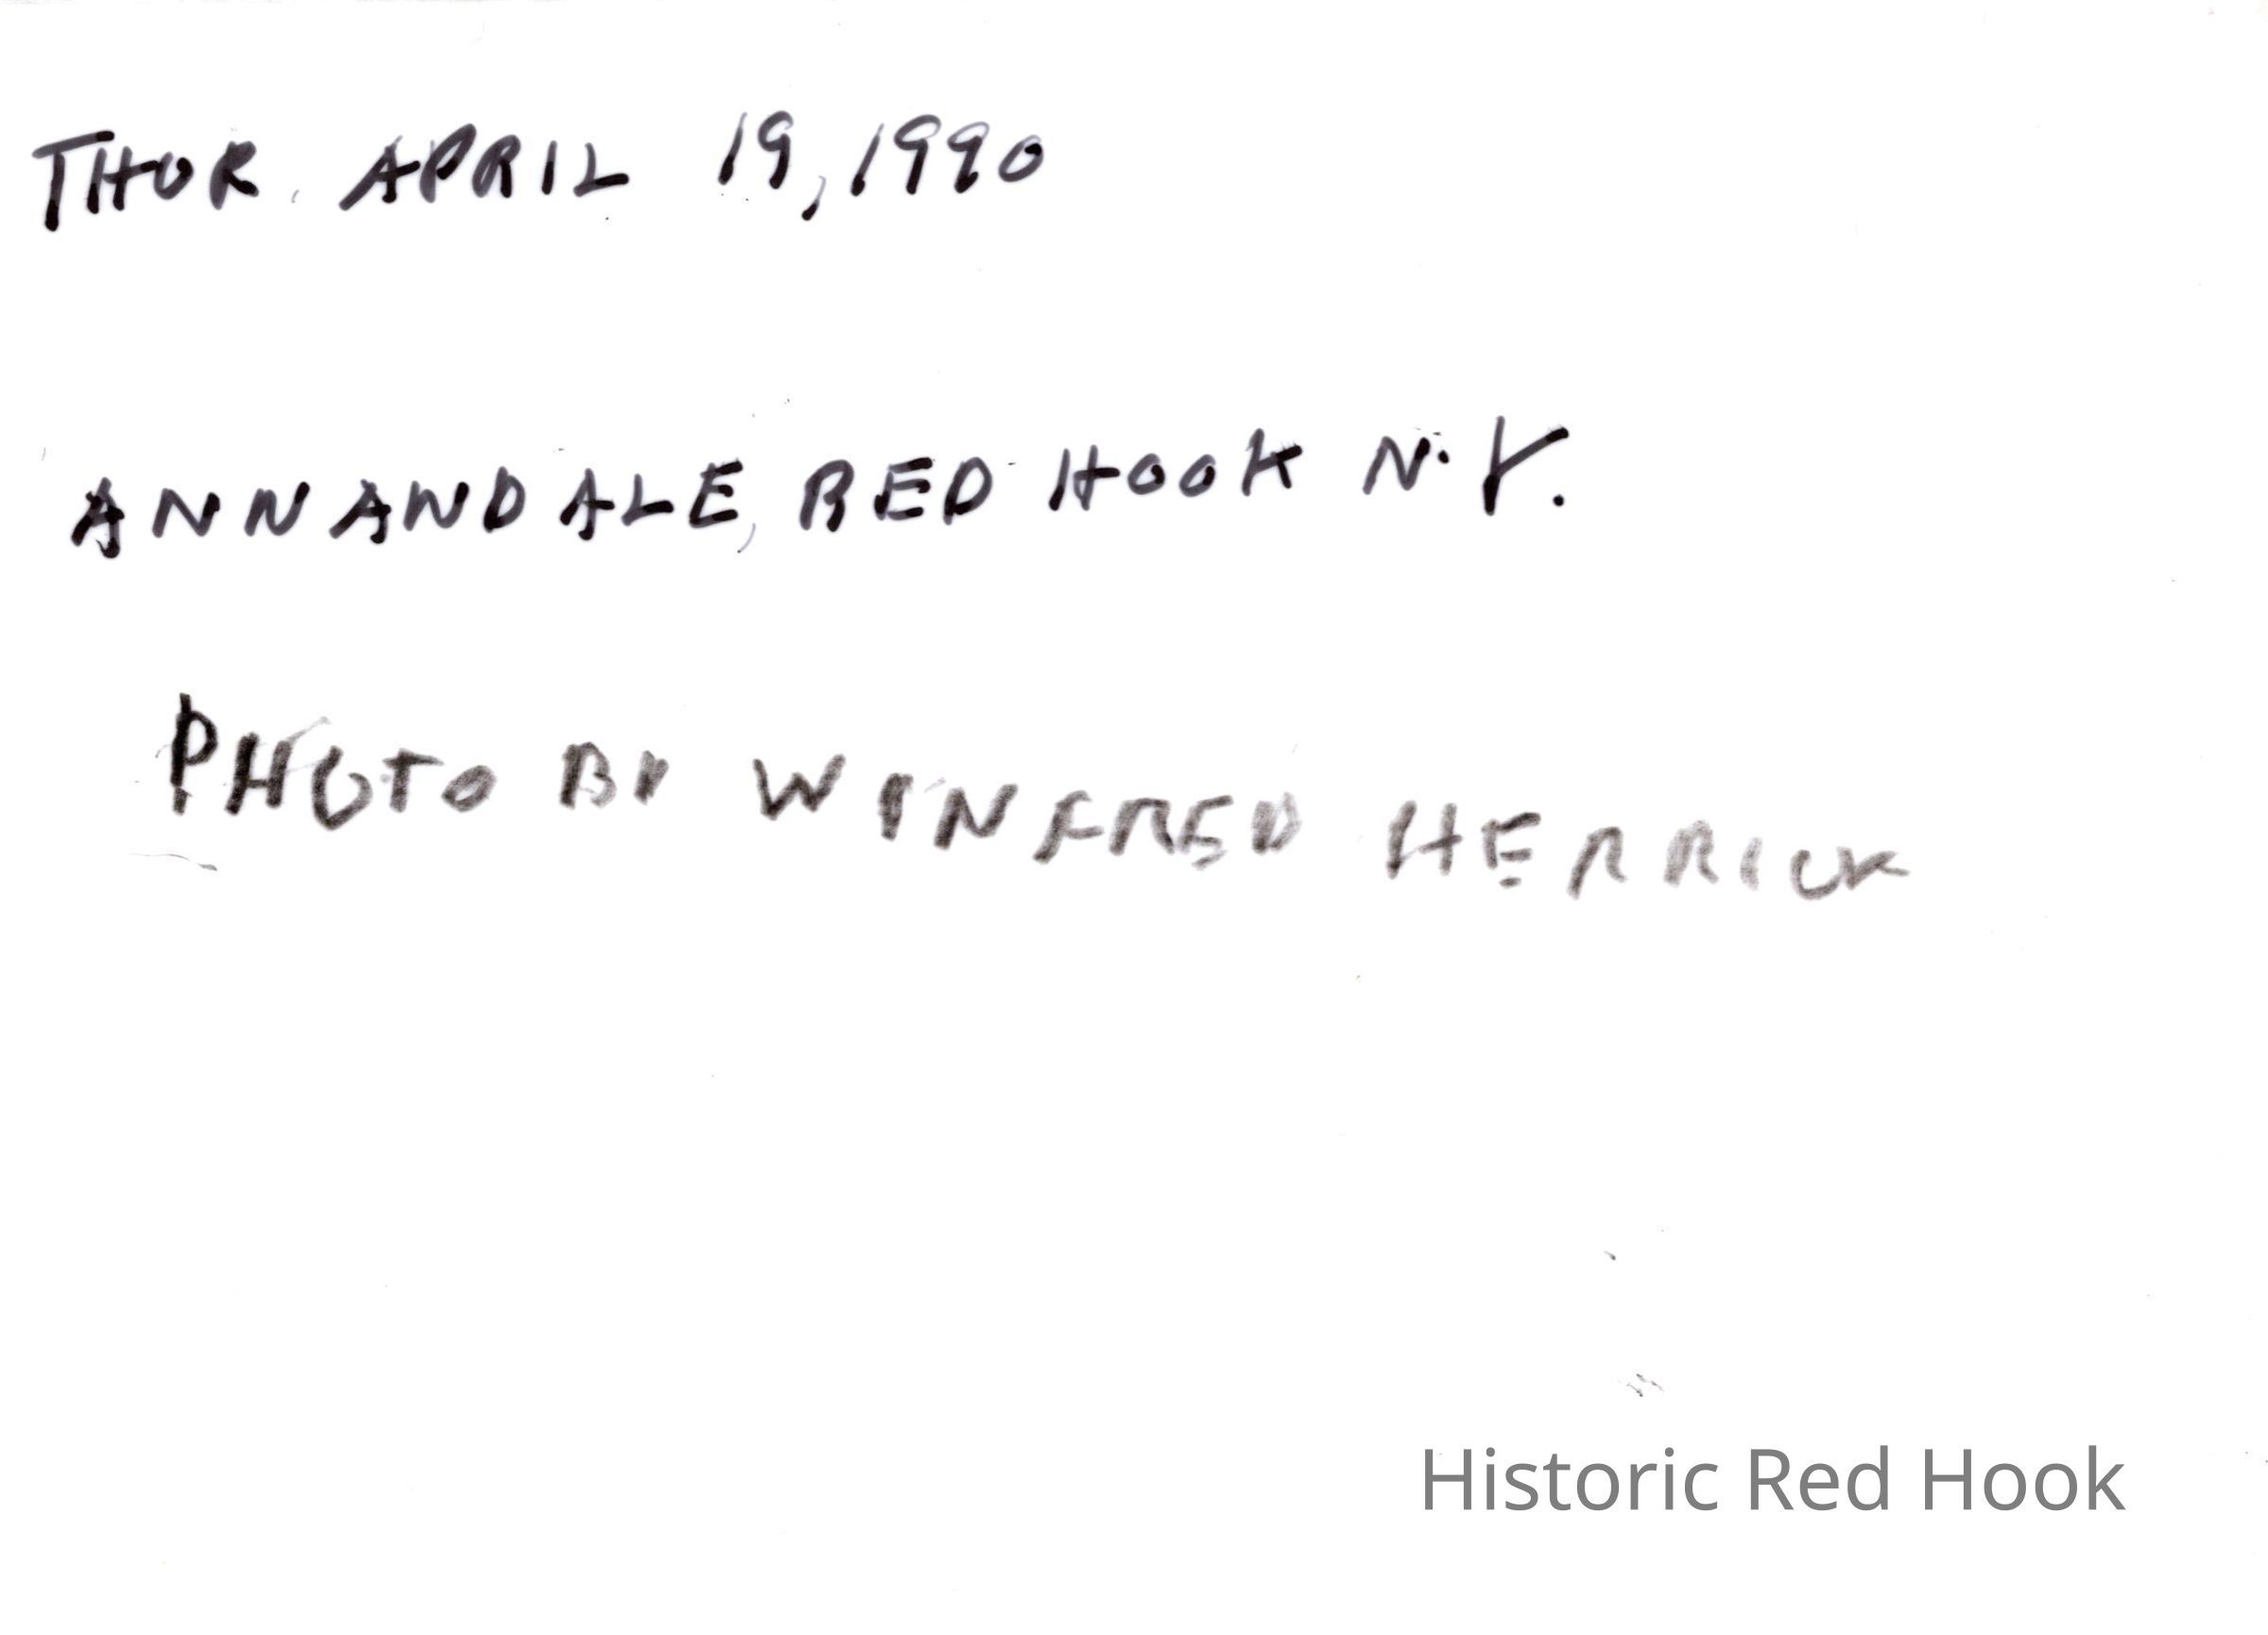 THUR. APRIL 19, 1990
ANNANDALE, RED HOOK N.Y.
PHOTO BY WINFRED HERRICK
Historic Red Hook